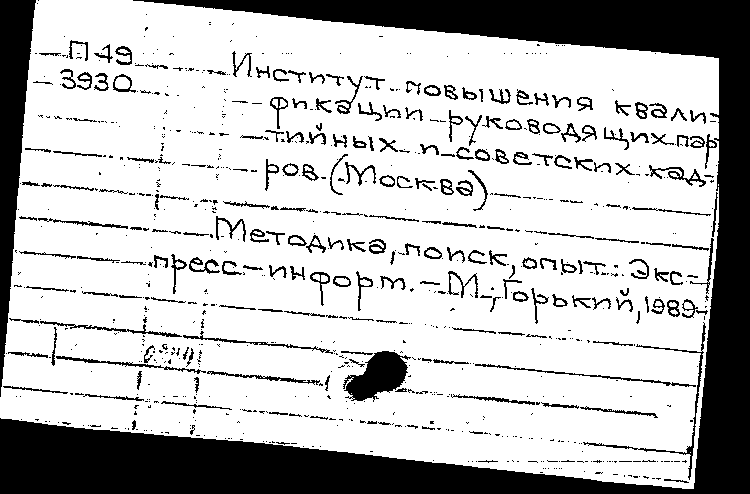 П 49
3930
Институт повышения квали-
фикации руководящих пар
тийных и советских кад-
ров. (Москва)
Методика, поиск, опыт: Экс-
пресс-информ. - М.; Горький, 1989-